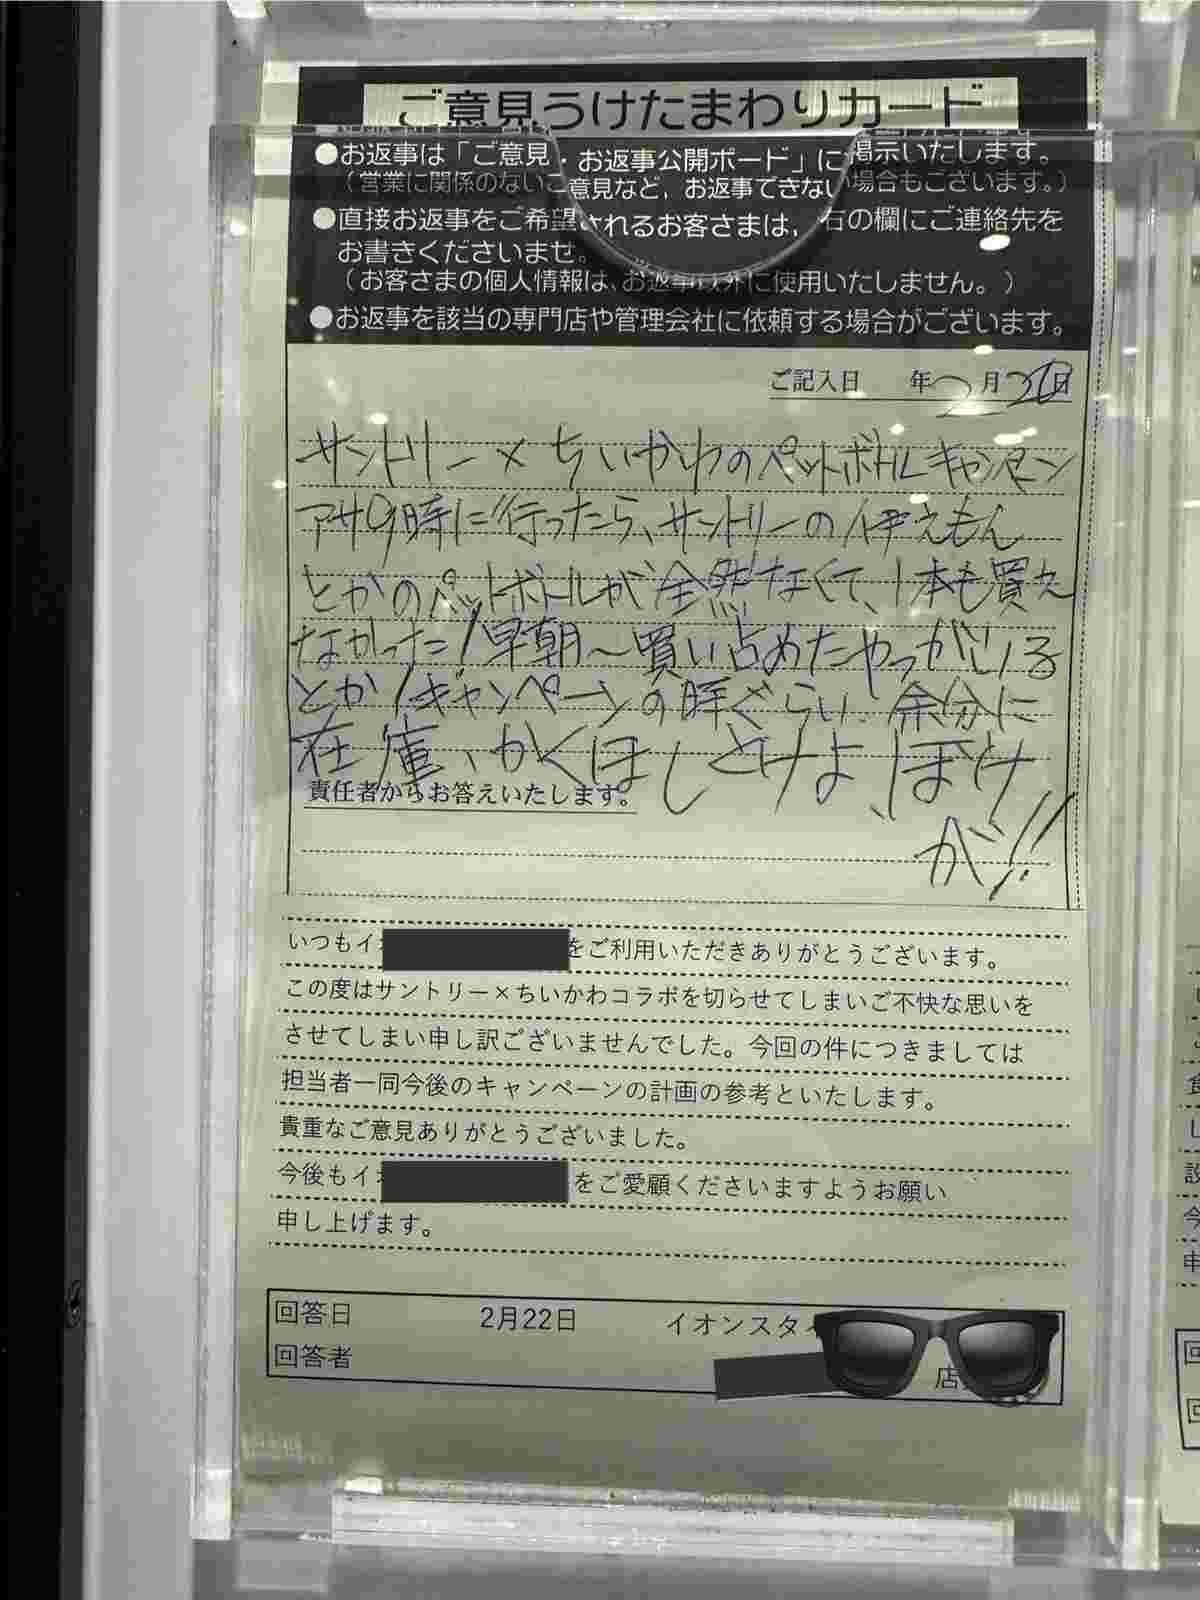 ご意見うけたまわりカード
●お返事は「ご意見・お返事公開ボード」に掲示いたします。
（営業に関係のないご意見など、お返事できない場合もございます。）
●直接お返事をご希望されるお客さまは、右の欄にご連絡先を
お書きくださいませ。
（お客さまの個人情報は、お返事以外に使用いたしません。）
●お返事を該当の専門店や管理会社に依頼する場合がございます。
ご記入日 年2月20日
サントリー×ちいかわのペットボトルキャンペーン
アサ9時に行ったら、サントリーの伊えもん
とかのペットボトルが全然なくて、1本も買え
なかった！早朝〜買い占めたやつがいる
とか！キャンペーンの時ぐらい、余分に
在庫、かくほしとけよ、ぼけ
が！！
責任者からお答えいたします。
いつもイオ をご利用いただきありがとうございます。
この度はサントリー×ちいかわコラボを切らせてしまいご不快な思いを
させてしまい申し訳ございませんでした。今回の件につきましては
担当者一同今後のキャンペーンの計画の参考といたします。
貴重なご意見ありがとうございました。
今後もイオ をご愛顧くださいますようお願い
申し上げます。
回答日 2月22日 イオンスタイ
回答者 店